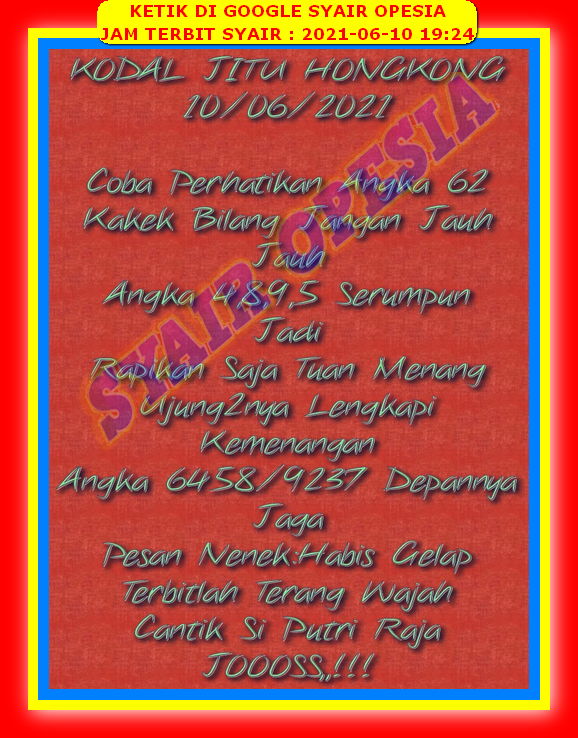 KETIK DI GOOGLE SYAIR OPESIA
JAM TERBIT SYAIR : 2021-06-10 19:24
KODAL JITU HONGKONG
10/06/2021
Coba Perhatikan Angka 62
Kakek Bilang Jangan Jauh
Jauh
Angka 4,8,9,5 Serumpun
Jadi
Rapikan Saja Tuan Menang
Ujung2nya Lengkapi
Kemenangan
Angka 6458/9237 Depannya
Jaga
Pesan Nenek:Habis Gelap
Terbitlah Terang Wajah
Cantik Si Putri Raja
JOOOSS,,!!!
SYAIR OPESIA